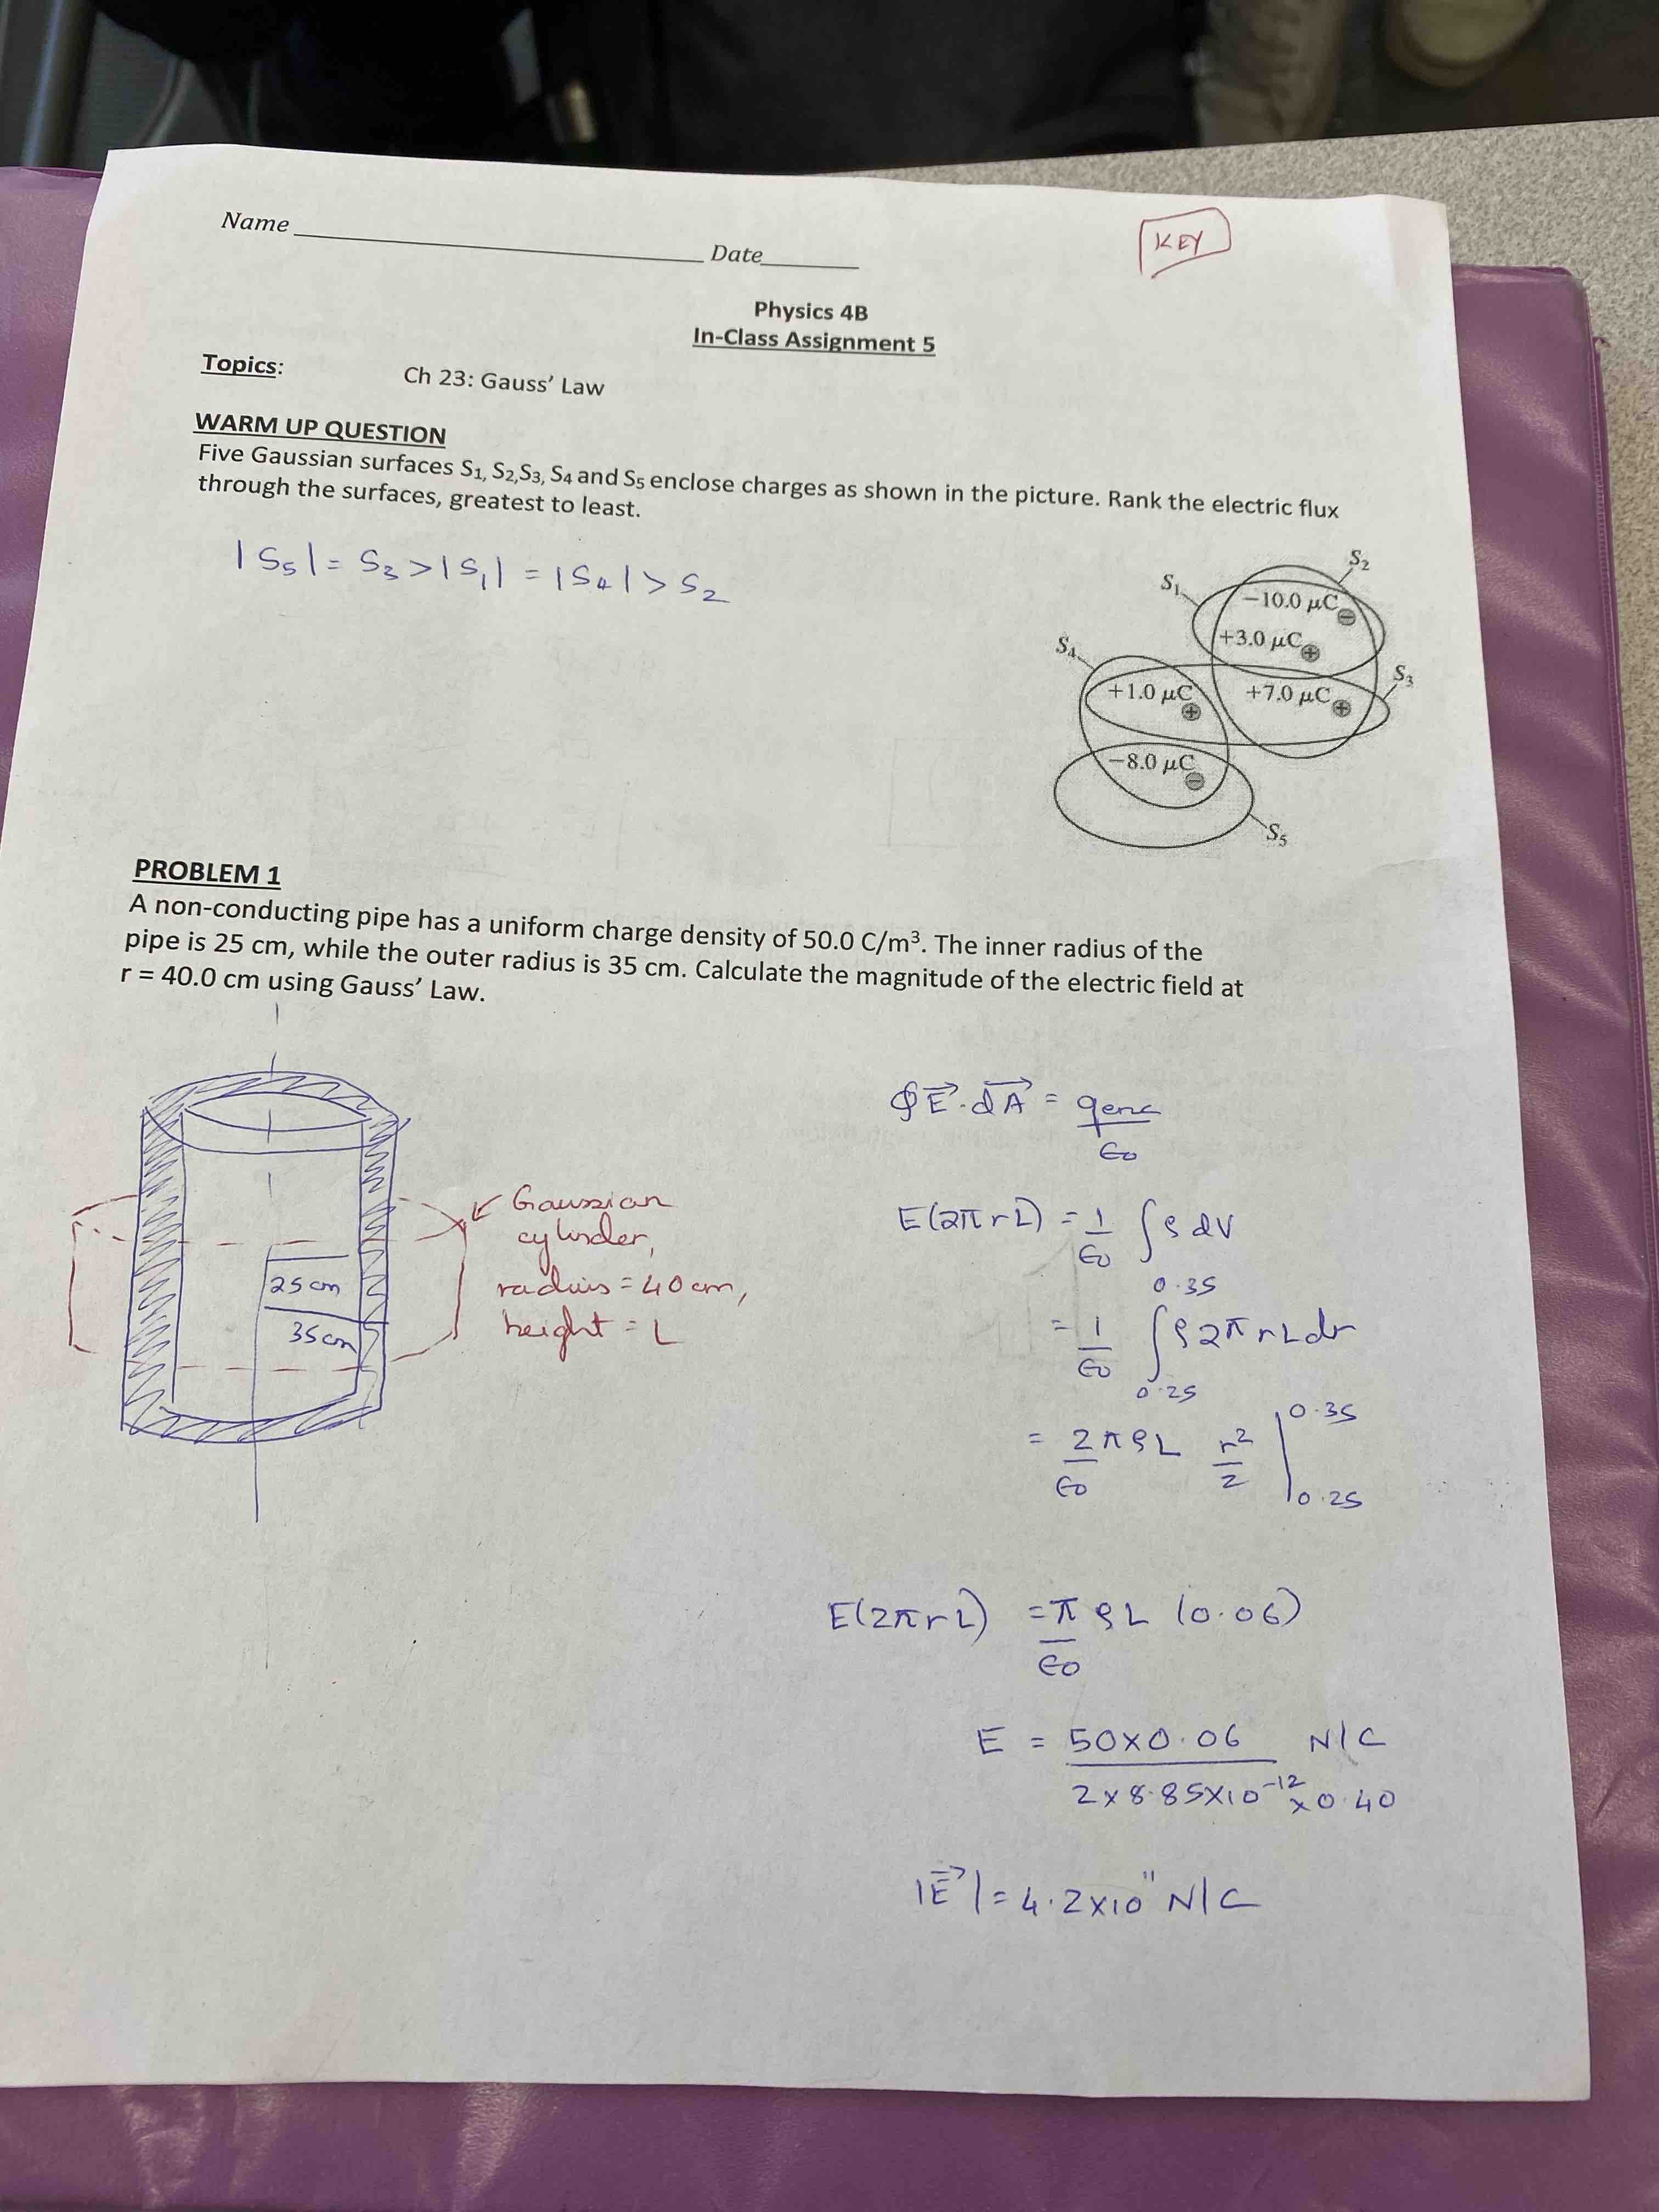 Name ____________ Date______
KEY
Physics 4B
In-Class Assignment 5
Topics: Ch 23: Gauss' Law
WARM UP QUESTION
Five Gaussian surfaces S₁, S₂,S₃, S₄ and S₅ enclose charges as shown in the picture. Rank the electric flux
through the surfaces, greatest to least.
|S₅| = S₃ > |S₁| = |S₄| > S₂
S₂
S₁
−10.0 μC
+3.0 μC
S₄
S₃
+1.0 μC
+7.0 μC
−8.0 μC
S₅
PROBLEM 1
A non-conducting pipe has a uniform charge density of 50.0 C/m³. The inner radius of the
pipe is 25 cm, while the outer radius is 35 cm. Calculate the magnitude of the electric field at
r = 40.0 cm using Gauss' Law.
Gaussian
cylinder,
radius = 40 cm,
height = L
25 cm
35 cm
∮E⃗·dA⃗ = qenc / ϵ₀
E(2πrL) = 1/ϵ₀ ∫ρdV
= 1/ϵ₀ ∫0.25^0.35 ρ2πrLdr
= 2πρL/ϵ₀ r²/2 |0.25^0.35
E(2πrL) = π/ϵ₀ ρL (0.06)
E = 50×0.06 / 2×8.85×10⁻¹²×0.40 N/C
|E⃗| = 4.2×10¹¹ N/C